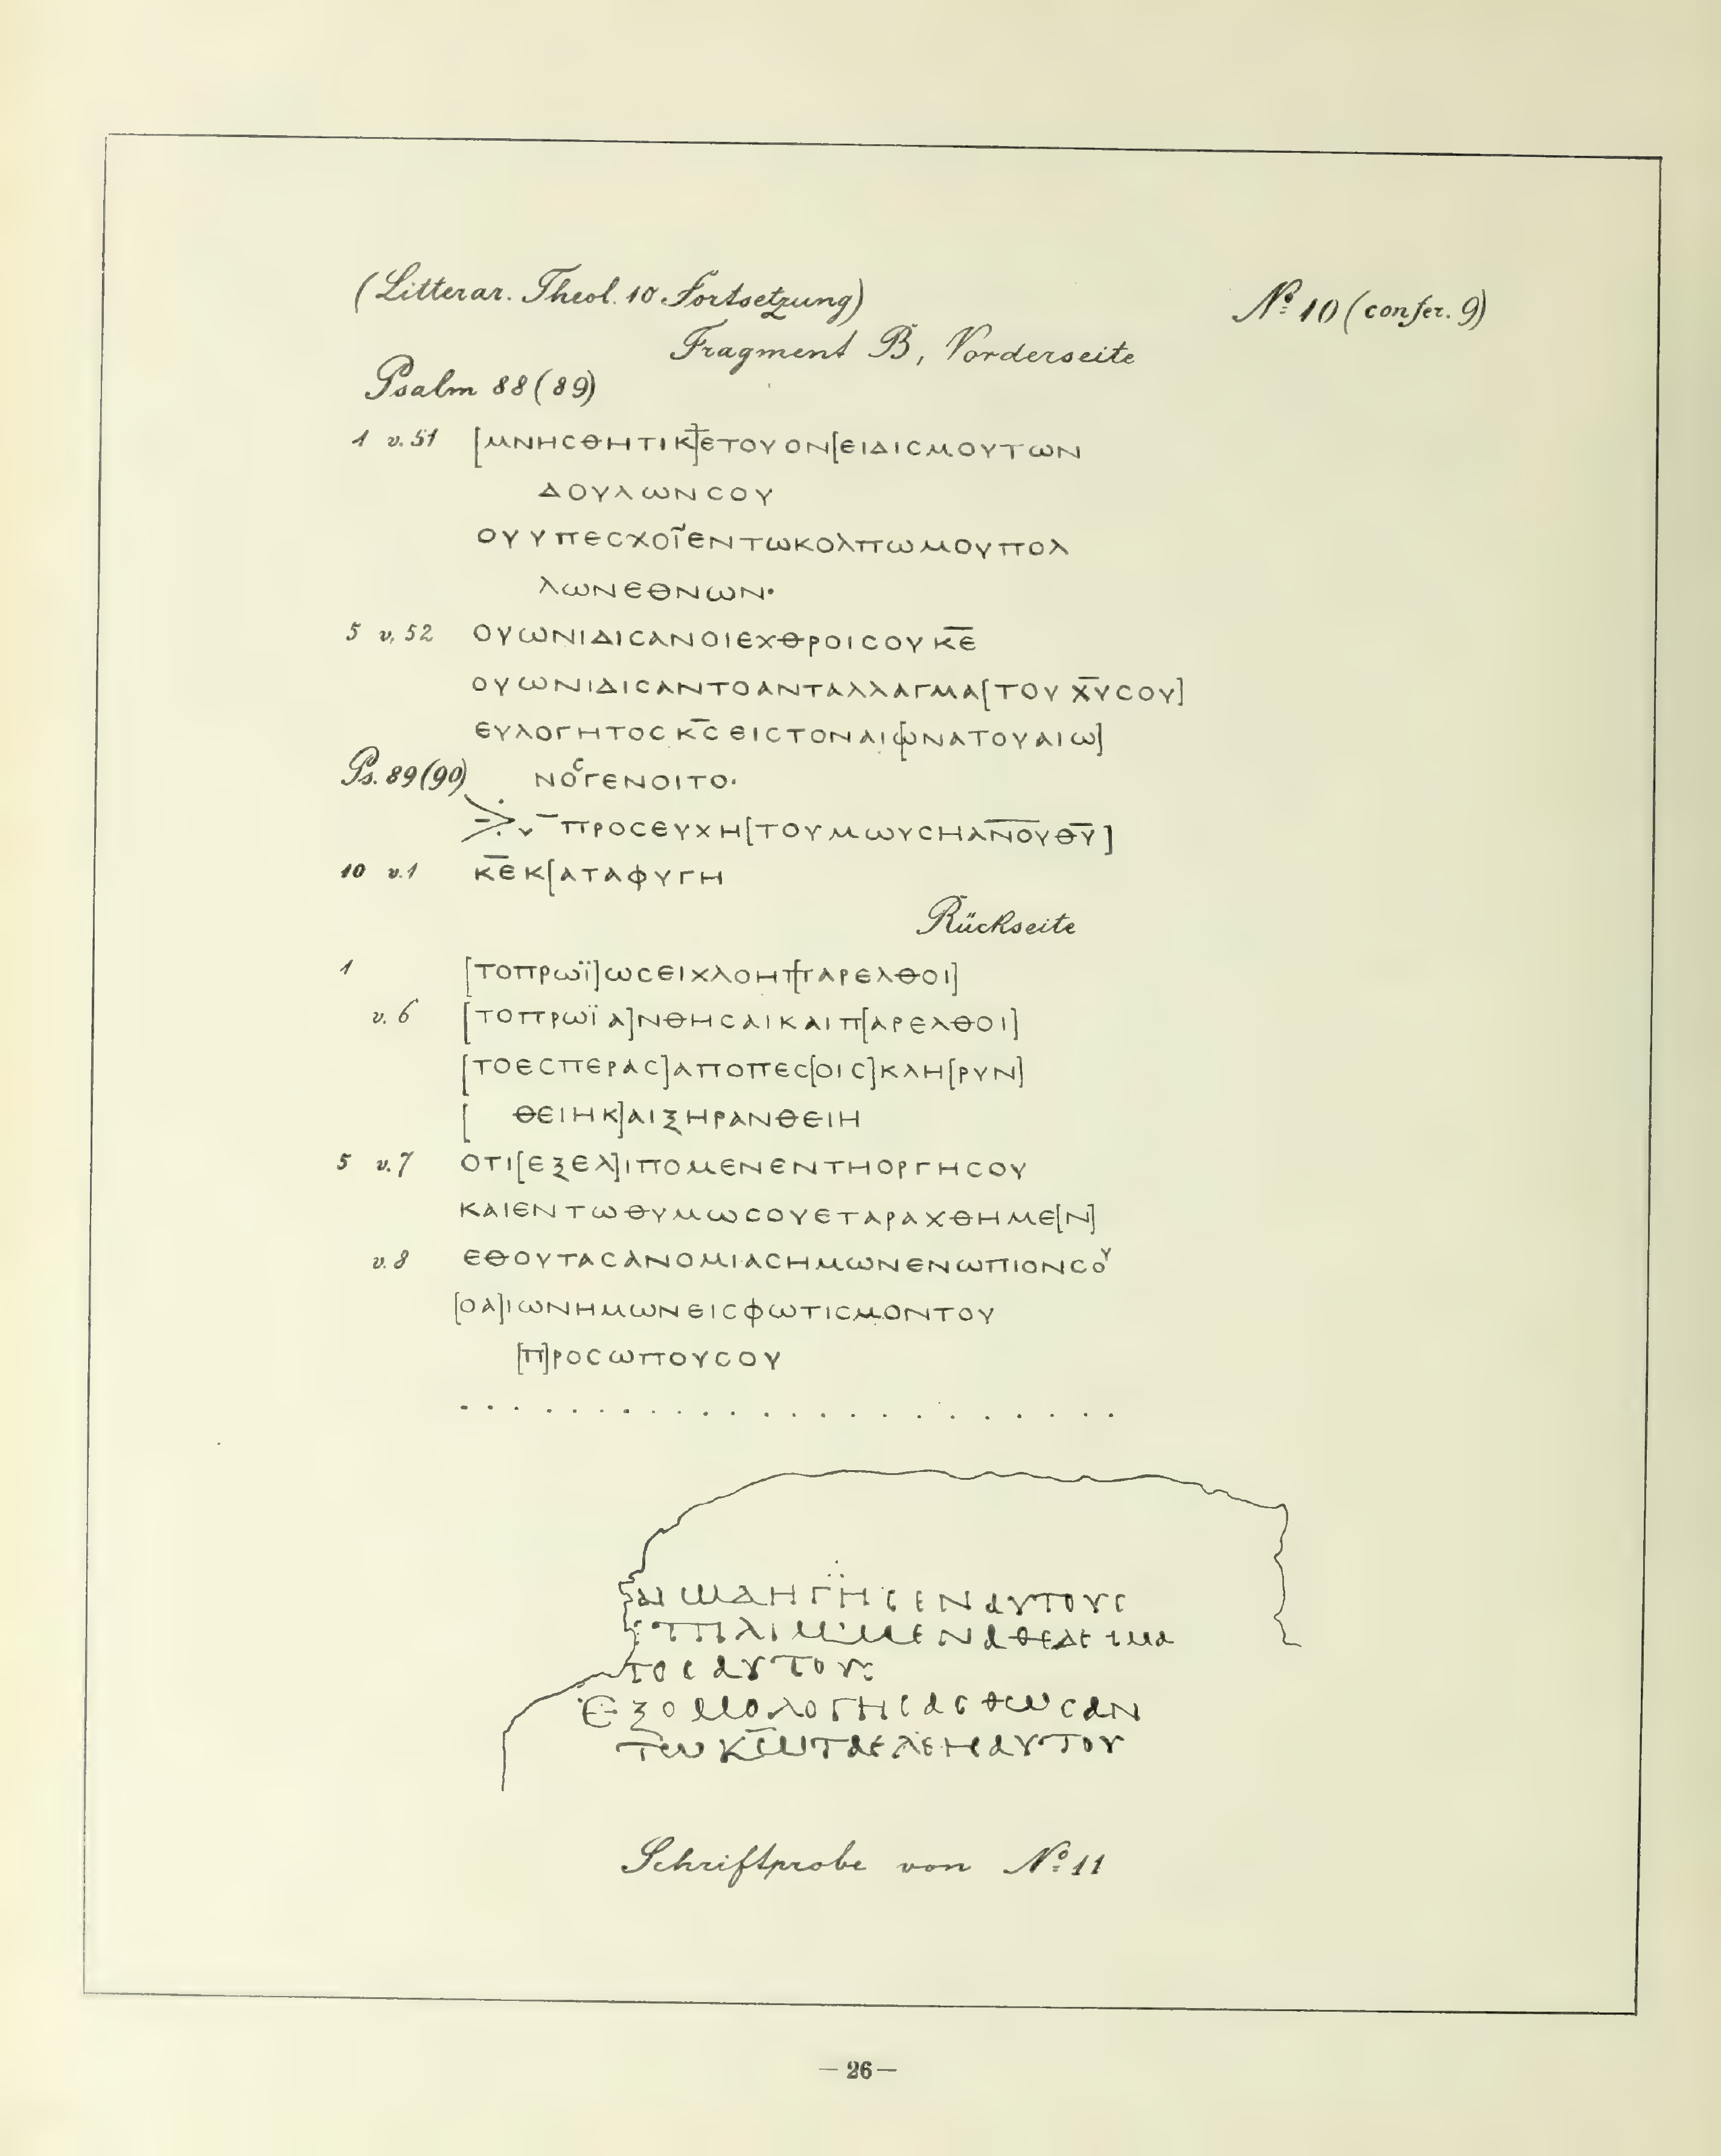 (Litterar. Theol. 10 Fortsetzung)
No 10 (confer. 9)
Fragment B, Vorderseite
Psalm 88(89)
1 v. 51 [ΜΝΗCΘΗΤΙΚ]ΕΤΟΥΟΝ[ΕΙΔΙCΜΟΥΤΩΝ
ΔΟΥΛΩΝCΟΥ
ΟΥΥΠΕCΧΟΪΕΝΤΩΚΟΛΠΩΜΟΥΠΟΛ
ΛΩΝΕΘΝΩΝ·
5 v. 52 ΟΥΩΝΙΔΙCΑΝΟΙΕΧΘΡΟΙCΟΥΚ̅Ε̅
ΟΥΩΝΙΔΙCΑΝΤΟΑΝΤΑΛΛΑΓΜΑ[ΤΟΥΧ̅Υ̅CΟΥ]
ΕΥΛΟΓΗΤΟCΚ̅C̅ΕΙCΤΟΝΑΙ[ΩΝΑΤΟΥΑΙΩ]
Ps. 89(90) ΝΟCΓΕΝΟΙΤΟ·
ΠΡΟCΕΥΧΗ[ΤΟΥΜΩΥCΗΑ̅Ν̅Ο̅Υ̅Θ̅Υ̅]
10 v. 1 Κ̅Ε̅Κ[ΑΤΑΦΥΓΗ
Rückseite
1 [ΤΟΠΡΩΪ]ΩCΕΙΧΛΟΗΠ[ΑΡΕΛΘΟΙ]
v. 6 [ΤΟΠΡΩΪΑ]ΝΘΗCΑΙΚΑΙΠ[ΑΡΕΛΘΟΙ]
[ΤΟΕCΠΕΡΑC]ΑΠΟΠΕC[ΟΙC]ΚΛΗ[ΡΥΝ]
[ΘΕΙΗΚ]ΑΙΞΗΡΑΝΘΕΙΗ
5 v. 7 ΟΤΙ[ΕΞΕΛ]ΙΠΟΜΕΝΕΝΤΗΟΡΓΗCΟΥ
ΚΑΙΕΝΤΩΘΥΜΩCΟΥΕΤΑΡΑΧΘΗΜΕ[Ν]
v. 8 ΕΘΟΥΤΑCΑΝΟΜΙΑCΗΜΩΝΕΝΩΠΙΟΝCΟΥ
[ΟΑ]ΙΩΝΗΜΩΝΕΙCΦΩΤΙCΜΟΝΤΟΥ
[Π]ΡΟCΩΠΟΥCΟΥ
. . . . . . . . . . . . . . . . . . . . . . .
ΤΟCΑΥΤΟΥ:
ΕΞΟΜΟΛΟΓΗCΑCΘΩCΑΝ
ΤΩΚ̅Ω̅ΤΑΕΛΕΗΑΥΤΟΥ
Schriftprobe von No 11
— 26 —